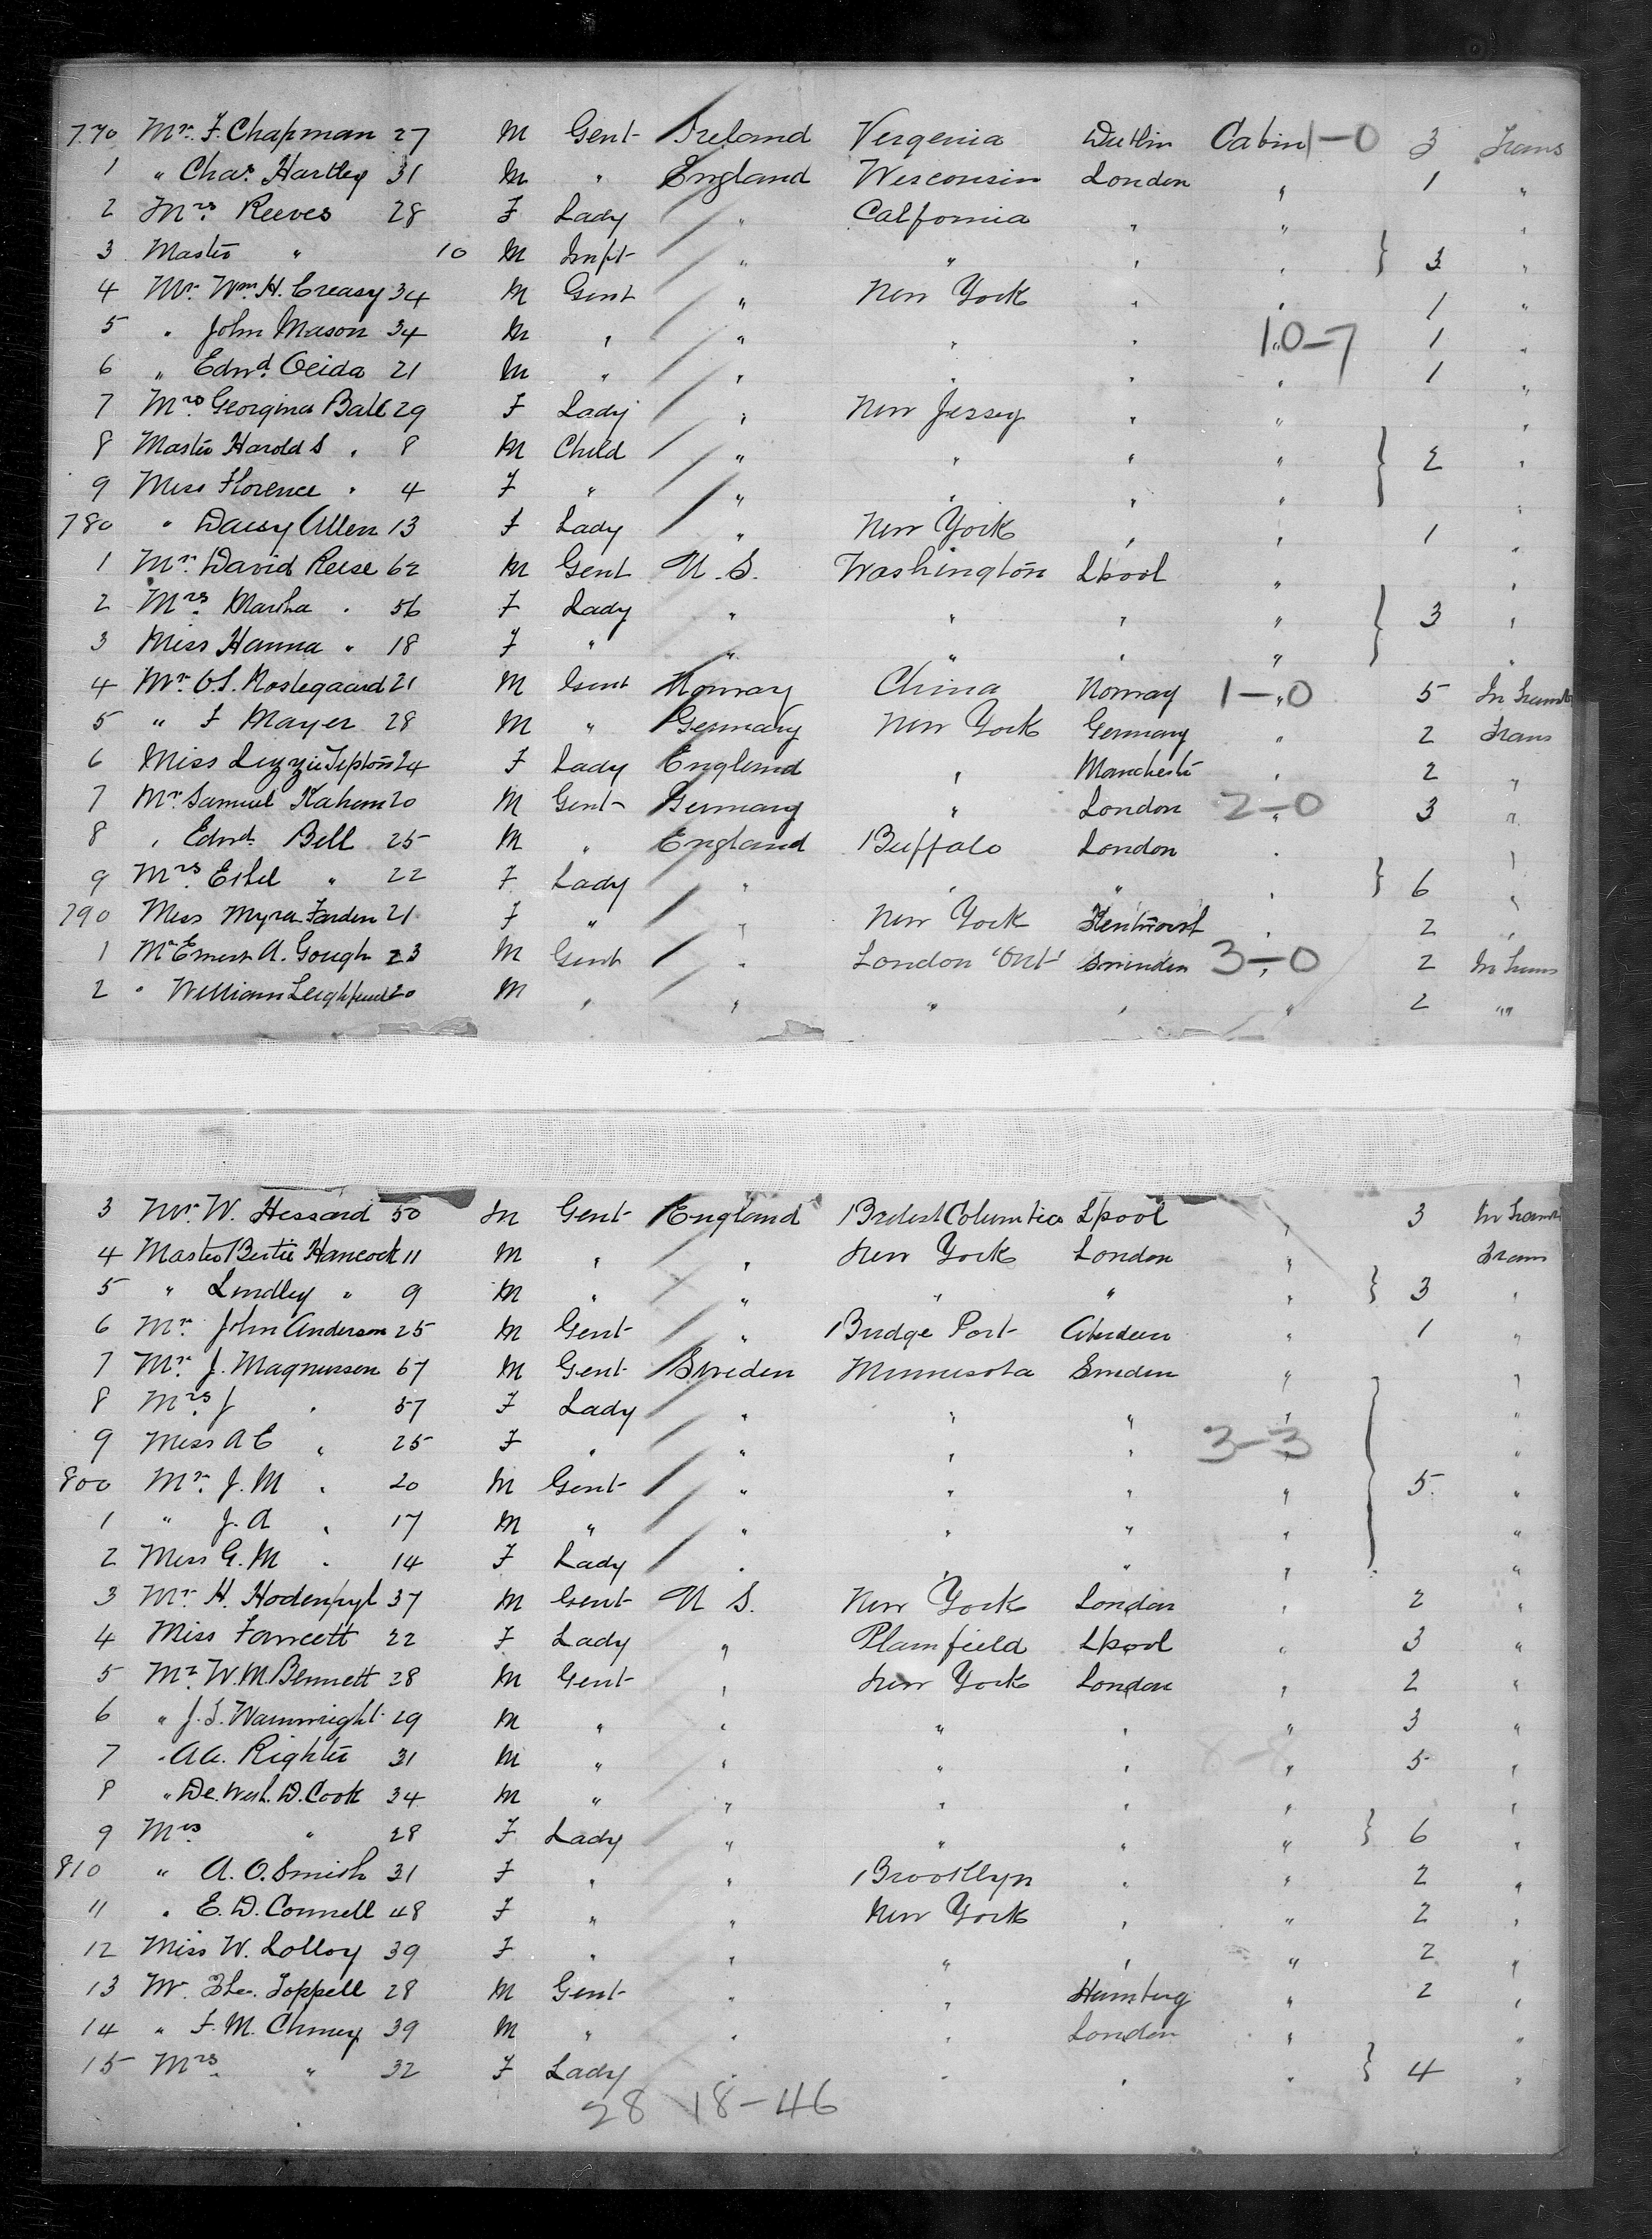 770 Mr. F. Chapman 27 M Gent Ireland Vergenia Dublin Cabin 1-0 3 Trans
1 " Chas. Hartley 31 M " England Wesconsin London " 1 "
2 Mrs. Reeves 28 F Lady " Calfornia " " "
3 Master " 10 M Inft " " " " } 3 "
4 Mr. Wm. H. Creasy 34 M Gent " New York " " 1 "
5 " John Mason 34 M " " " " 10-7 " 1 "
6 " Edwd. Oeida 21 M " " " " " 1 "
7 Mrs Georgina Ball 29 F Lady " New Jersey " " "
8 Master Harold S " 8 M Child " " " " } 2 "
9 Miss Florence " 4 F " " " " " "
780 " Daisy Allen 13 F Lady " New York " " 1 "
1 Mr. David Reese 62 M Gent U.S. Washington Lpool " "
2 Mrs. Martha " 56 F Lady " " " " } 3 "
3 Miss Hanna " 18 F " " " " " "
4 Mr. O.S. Rostegaard 21 M Gent Norway China Norway 1-0 " 5 In Transit
5 " F Mayer 28 M " Germany New York Germany " 2 Trans
6 Miss Lizzie Tipton 24 F Lady England " Manchester " 2 "
7 Mr. Samuel Kahem 20 M Gent Germany " London 2-0 " 3 "
8 " Edwd. Bell 25 M " England Buffalo London " "
9 Mrs. Ethel " 22 F Lady " " " " } 6 "
790 Miss Myra Farden 21 F " " New York " 2 "
1 Mr Ernest A. Gough 23 M Gent " London "Ont" Swinden 3-0 " 2 In Trans
2 " William 20 M " " " " " 2 " "
3 Mr. W. Hessard 50 M Gent England Lpool " 3 In Transit
4 Master Bertie Hancock 11 M " " New York London " Trans
5 " Lindley " 9 M " " " " " } 3 "
6 Mr. John Anderson 25 M Gent " Bridge Port Aberdeen " 1 "
7 Mr. J. Magnusson 67 M Gent Sweden Minnesota Sweden " "
8 Mrs. J " 57 F Lady " " " " "
9 Miss A E " 25 F " " " " 3-3 " "
800 Mr. J. M " 20 M Gent " " " " } 5 "
1 " J. A " 17 M " " " " " "
2 Miss G. M " 14 F Lady " " " " "
3 Mr. H. Hodenpyl 37 M Gent U S. New York London " 2 "
4 Miss Fawcett 22 F Lady " Plainfield Lpool " 3 "
5 Mr. W. M. Bennett 28 M Gent " New York London " 2 "
6 " J. T. Wainwright 29 M " " " " " 3 "
7 " A G. Righter 31 M " " " " " 5 "
8 " De. West. D. Cook 34 M " " " " " "
9 Mrs " 28 F Lady " " " " } 6 "
810 " A. O. Smith 31 F " " Brooklyn " " 2 "
11 " E. D. Connell 48 F " " New York " " 2 "
12 Miss W. Lolloy 39 F " " " " " 2 "
13 Mr. Theo. Toppell 28 M Gent " " Hamburg " 2 "
14 " F. M. 39 M " " " London " "
15 Mrs. " 32 F Lady " " " " } 4 "
28 18-46